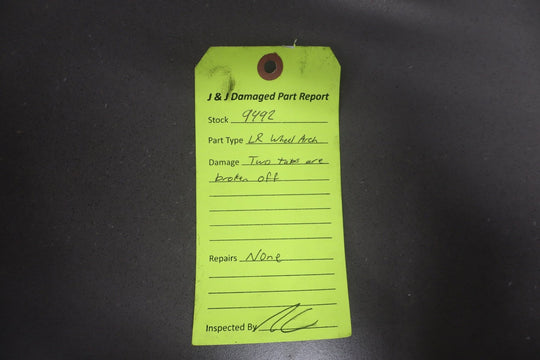 J & J Damaged Part Report
Stock 9492
Part Type LR Wheel Arch
Damage Two tabs are
broken off
Repairs None
Inspected By